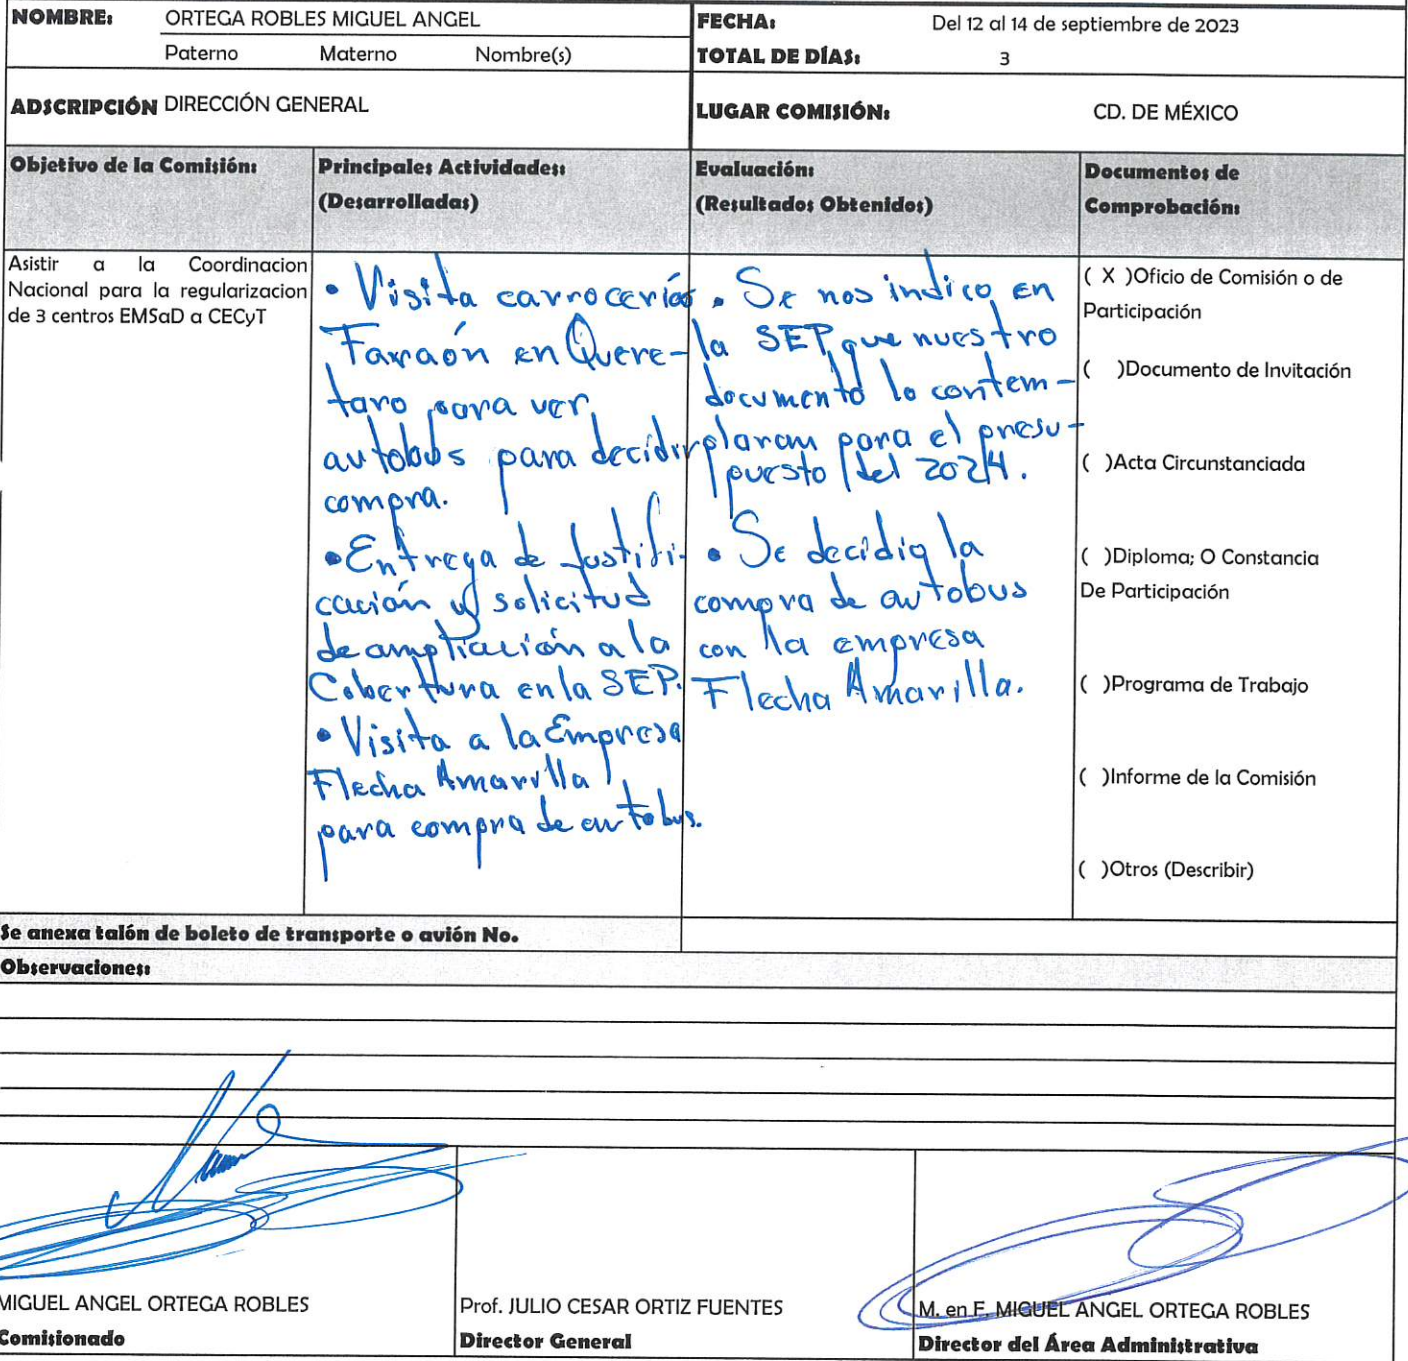 NOMBRE: ORTEGA ROBLES MIGUEL ANGEL
Paterno Materno Nombre(s)
FECHA: Del 12 al 14 de septiembre de 2023
TOTAL DE DÍAS: 3
ADSCRIPCIÓN DIRECCIÓN GENERAL
LUGAR COMISIÓN: CD. DE MÉXICO
Objetivo de la Comisión:
Principales Actividades:
(Desarrolladas)
Evaluación:
(Resultados Obtenidos)
Documentos de
Comprobación:
Asistir a la Coordinacion
Nacional para la regularizacion
de 3 centros EMSaD a CECyT
• Visita carrocerías
Faraón en Quere-
taro para ver
autobús para decidir
compra.
• Entrega de Justifi-
cación y solicitud
de ampliación a la
Cobertura en la SEP.
• Visita a la Empresa
Flecha Amarilla
para compra de autobus.
• Se nos indico en
la SEP, que nuestro
documento lo contem-
plaran para el presu-
puesto del 2024.
• Se decidio la
compra de autobus
con la empresa
Flecha Amarilla.
( X )Oficio de Comisión o de
Participación
( )Documento de Invitación
( )Acta Circunstanciada
( )Diploma; O Constancia
De Participación
( )Programa de Trabajo
( )Informe de la Comisión
( )Otros (Describir)
Se anexa talón de boleto de transporte o avión No.
Observaciones:
MIGUEL ANGEL ORTEGA ROBLES
Comisionado
Prof. JULIO CESAR ORTIZ FUENTES
Director General
M. en F. MIGUEL ANGEL ORTEGA ROBLES
Director del Área Administrativa